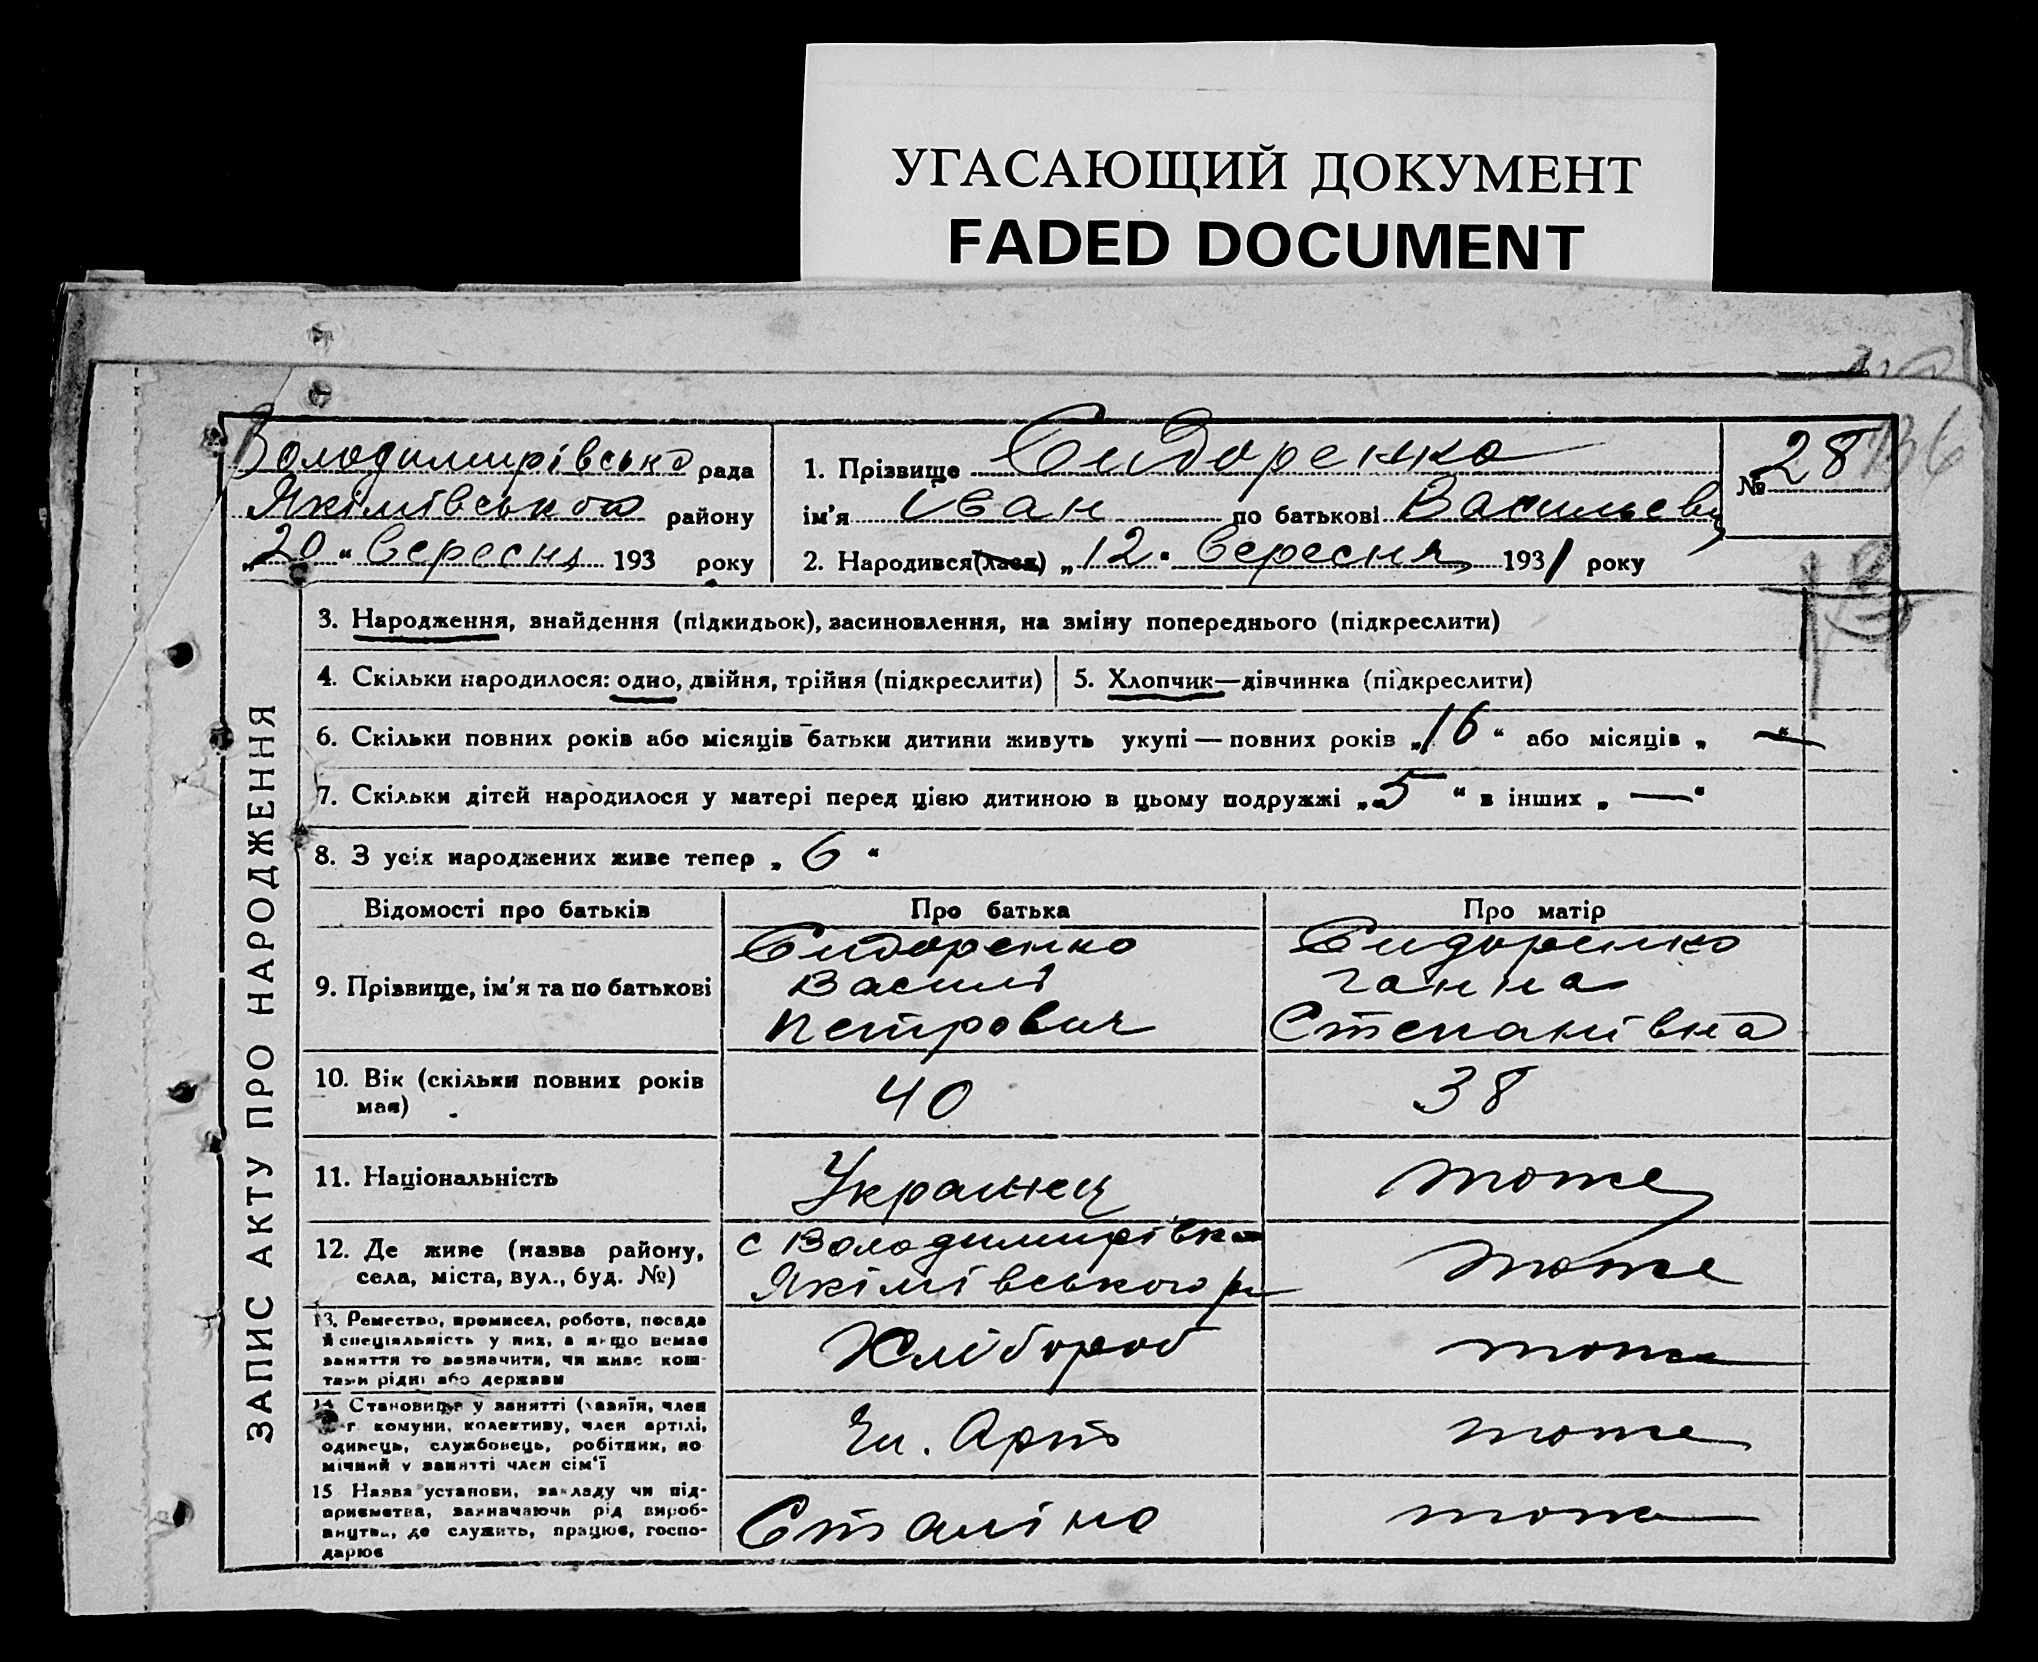 УГАСАЮЩИЙ ДОКУМЕНТ
FADED DOCUMENT
Володимирівська рада
Якімівського району
„20“ вересня 193 року
1. Прізвище Сидоренко
ім'я Іван по батькові Васильевич
2. Народився(лася) „12“ вересня 1931 року
№ 28
136
ЗАПИС АКТУ ПРО НАРОДЖЕННЯ
3. Народження, знайдення (підкидьок), засиновлення, на зміну попереднього (підкреслити)
4. Скільки народилося: одно, двійня, трійня (підкреслити)
5. Хлопчик—дівчинка (підкреслити)
6. Скільки повних років або місяців батьки дитини живуть укупі — повних років „16“ або місяців „—“
7. Скільки дітей народилося у матері перед цією дитиною в цьому подружжі „5“ в інших „—“
8. З усіх народжених живе тепер „6“
Відомості про батьків Про батька Про матір
9. Прізвище, ім'я та по батькові
Сидоренко
Василь
Петрович
Сидоренко
Ганна
Степанівна
10. Вік (скільки повних років
має)
40
38
11. Національність
Украінец
тоже
12. Де живе (назва району,
села, міста, вул., буд. №)
с Володимирівка
Якімівського рн
тоже
13. Ремество, промисел, робота, посада
й спеціяльність у них, а якщо немає
заняття то зазначити, чи живе кош-
тами рідні або держави
Хлібороб
тоже
14 Становище у занятті (хазяїн, член
с.-г. комуни, колективу, член артілі,
одинець, службовець, робітник, по
мічний у занятті член сім'ї
Чл. Арт
тоже
15 Назва установи, закладу чи під-
приємства, зазначаючи рід вироб-
ництва, де служить, працює, госпо-
дарює
Сталіна
тоже